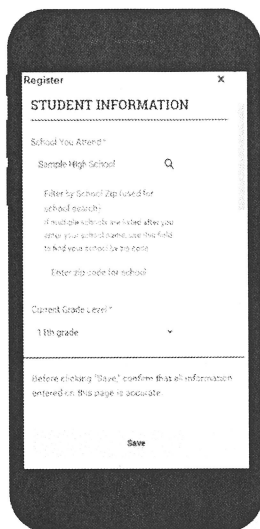 Register X
STUDENT INFORMATION
School You Attend *
Sample High School
Filter by School Zip (used for
school search)
If multiple schools are listed after you
enter your school name, use this field
to find your school by zip code
Enter zip code for school
Current Grade Level *
11th grade
Before clicking "Save," confirm that all information
entered on this page is accurate.
Save